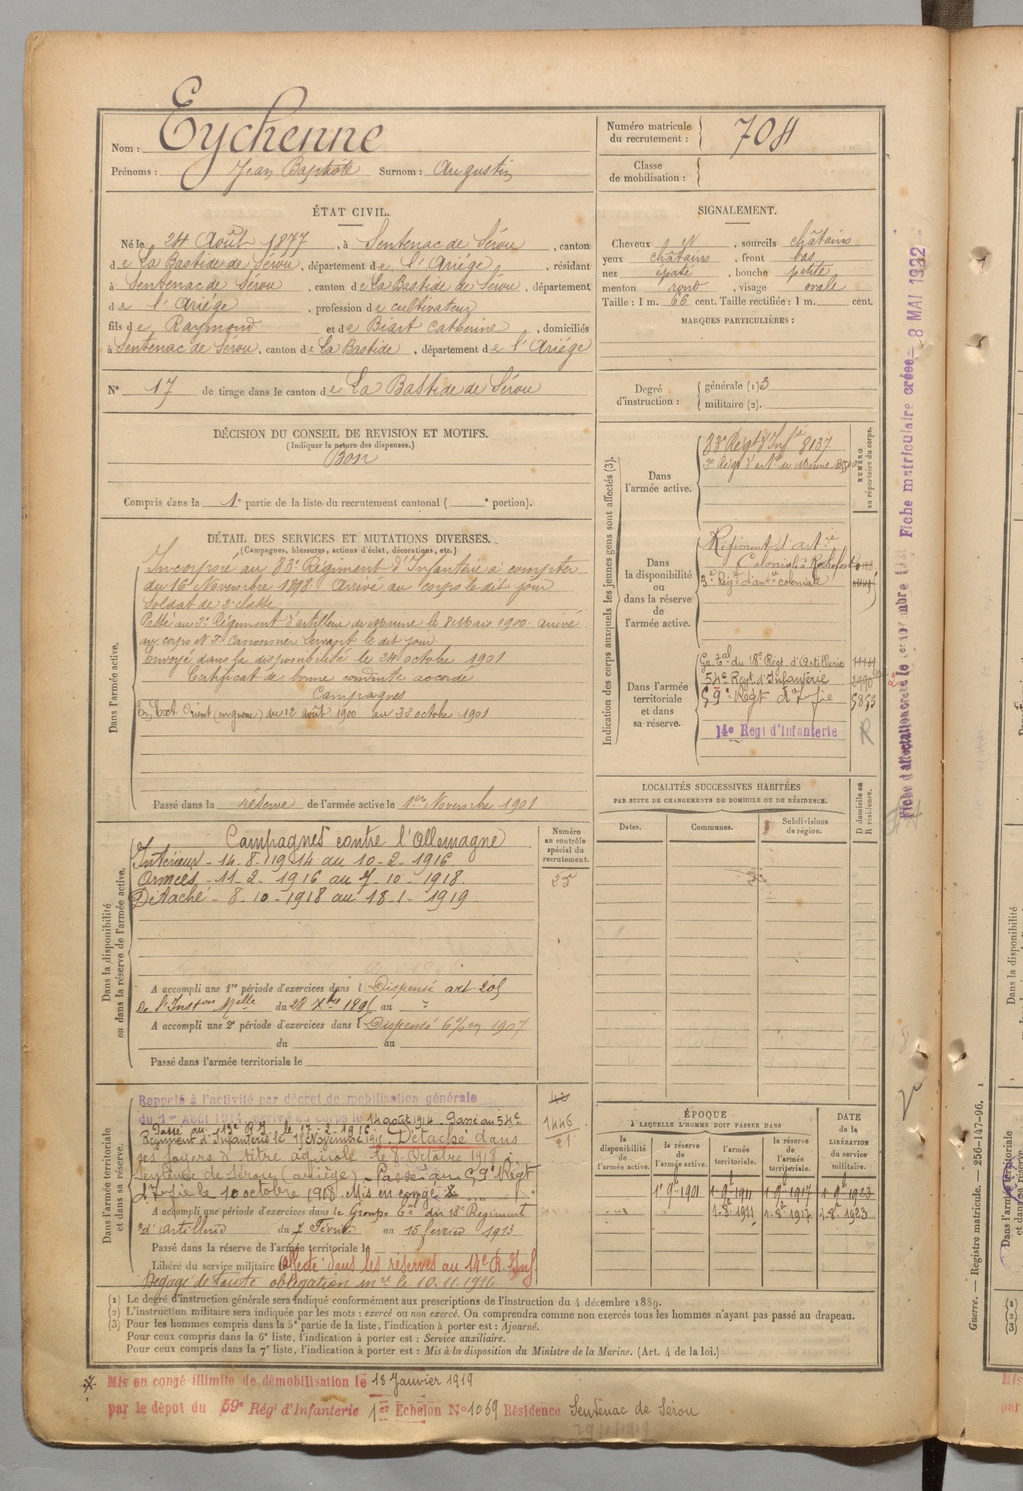 Nom : Eychenne
Prénoms : Jean Baptiste Surnom : Augustin
Numéro matricule du recrutement : 704
Classe de mobilisation :
ÉTAT CIVIL.
Né le 24 Août 1877, à Sentenac de Sérou, canton
de La Bastide de Sérou, département de l'Ariège, résidant
à Sentenac de Sérou, canton de La Bastide de Sérou, département
de l'Ariège, profession de cultivateur
fils de Raymond et de Biart Catherine, domiciliés
à Sentenac de Sérou, canton de La Bastide, département de l'Ariége
N° 17 de tirage dans le canton de La Bastide de Sérou
SIGNALEMENT.
Cheveux et, sourcils châtains
yeux châtains, front bas
nez épaté, bouche petite
menton rond, visage ovale
Taille : 1 m. 66 cent. Taille rectifiée : 1 m. cent.
MARQUES PARTICULIÈRES :
Degré d'instruction : générale (1) 3
militaire (2).
DÉCISION DU CONSEIL DE REVISION ET MOTIFS.
(Indiquer la nature des dispenses.)
Bon
Compris dans la 1e partie de la liste du recrutement cantonal ( e portion).
DÉTAIL DES SERVICES ET MUTATIONS DIVERSES.
(Campagnes, blessures, actions d'éclat, décorations, etc.)
Dans l'armée active.
Incorporé au 83e Régiment d'Infanterie à compter
du 16 Novembre 1898 arrivé au corps le dit jour
Soldat de 2e classe
Passé au 3e Régiment d'artillerie de marine le 8 Mars 1900 arrivé
au corps et 2e Canonnier servant le dit jour
Envoyé dans la disponibilité le 24 octobre 1901
Certificat de bonne conduite accordé
Campagnes
En Ext Orient (en guerre) du 12 août 1900 au octobre 1901
Passé dans la réserve de l'armée active le 1er Novembre 1901
Indication des corps auxquels les jeunes gens sont affectés (3).
NUMÉRO au répertoire du corps.
Dans l'armée active.
83e Régt d'Infie 8137
3e Régt d'artie de Marine
Dans la disponibilité ou dans la réserve de l'armée active.
Régiment d'artie
Coloniale Rochefort
3e Régt d'artie coloniale
Dans l'armée territoriale et dans sa réserve.
Gr. tal du 18e Régt d'Artillerie
54e Régt d'Infanterie
59e Régt d'Infie 5853
14e Régt d'Infanterie R
LOCALITÉS SUCCESSIVES HABITÉES
PAR SUITE DE CHANGEMENTS DE DOMICILE OU DE RÉSIDENCE.
Dates. Communes. Subdivisions de région. D domicile ou R résidence.
Dans la disponibilité ou dans la réserve de l'armée active.
Numéro au contrôle spécial du recrutement.
25
Campagnes contre l'Allemagne
Intérieur - 14. 8. 1914 au 10 - 2 - 1916
Armées - 11 - 2 - 1916 au 7 - 10 - 1918
Détaché - 8 - 10 - 1918 au 18 - 1 - 1919
A accompli une 1re période d'exercices dans l Dispensé art
De l'Inston Melle du 28 Xbre 189 au
A accompli une 2e période d'exercices dans l Dispensé en 1907
du au
Passé dans l'armée territoriale le
Dans l'armée territoriale et dans sa réserve.
Rappelé à l'activité par décret de mobilisation générale
du 1er Août 1914 arrivé au corps le 14 août 1914. Passé au 54e
Passé au 113e R.I. le 17-2-1916
Régiment d'Infanterie le Novembre 1915 Détaché dans
ses foyers à titre agricole le 8 Octobre 1918 à
Sentenac de Sérou (Ariège) - Passé au 59e Régt
d'Infie le 10 octobre 1918 Mis en congé
1446
21
A accompli une période d'exercices dans le Groupe tal du 18e Régiment
d'Artillerie du 7 Février au 15 février 1913
Passé dans la réserve de l'armée territoriale le
Libéré du service militaire Affecté dans les réserves au 14e R. Inf
Dégagé de toute obligation mre le 10.11.1926
ÉPOQUE
À LAQUELLE L'HOMME DOIT PASSER DANS
DATE de la LIBÉRATION du service militaire.
la disponibilité de l'armée active. la réserve de l'armée active. l'armée territoriale. la réserve de l'armée territoriale.
1er 9e 1901 1-9e 1911 1-9e 1917 1-9e 1923
1-8e 1911 1-8e 1917 1-8e 1923
(1) Le degré d'instruction générale sera indiqué conformément aux prescriptions de l'instruction du 4 décembre 1889.
(2) L'instruction militaire sera indiquée par les mots : exercé ou non exercé. On comprendra comme non exercés tous les hommes n'ayant pas passé au drapeau.
(3) Pour les hommes compris dans la 5e partie de la liste, l'indication à porter est : Ajourné.
Pour ceux compris dans la 6e liste, l'indication à porter est : Service auxiliaire.
Pour ceux compris dans la 7e liste, l'indication à porter est : Mis à la disposition du Ministre de la Marine. (Art. 4 de la loi.)
Mis en congé illimité de démobilisation le 18 Janvier 1919
par le dépôt du 59e Régt d'Infanterie 1er Echelon No 1069 Résidence Sentenac de Sérou
Fiche matriculaire créée 8 MAI 1922
Guerre. — Registre matricule. — 256-147-96.